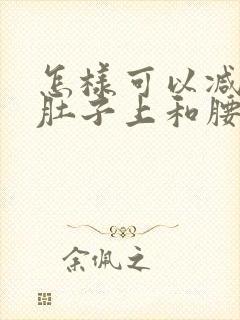 怎样可以减
肚子上和腰
余佩之